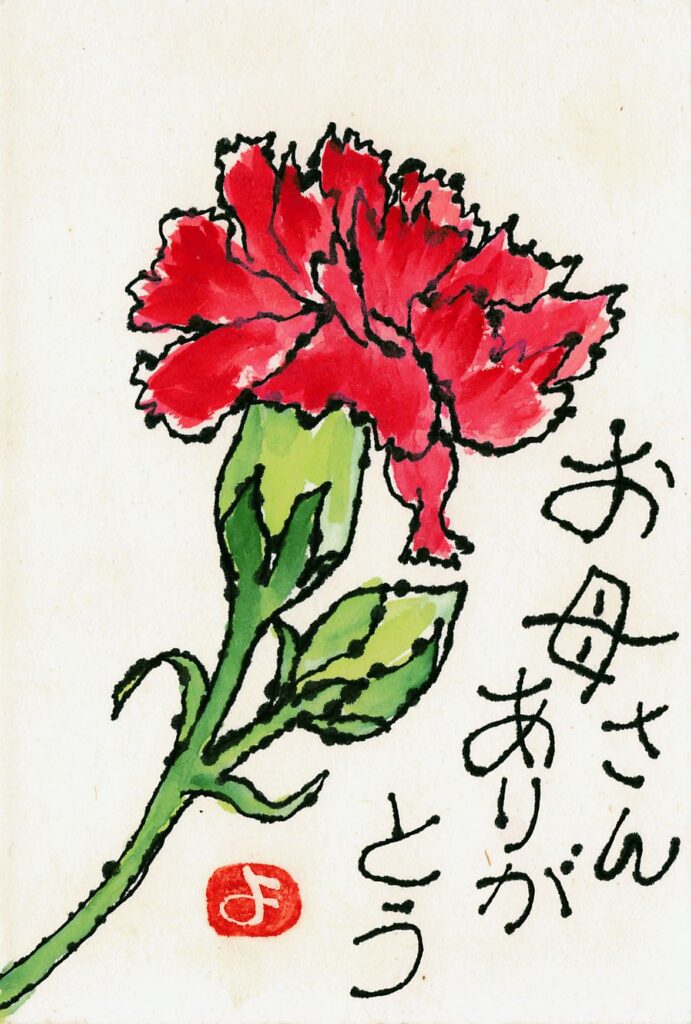 お母さん
ありが
とう
よ